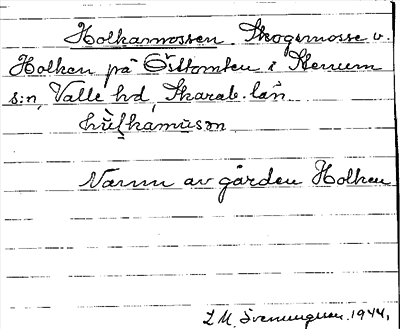 Holkamossen. Skogsmosse v.
Holken på Östtomten i Stenum
s:n, Valle hd, Skarab. län
Namn av gården Holken
1944.